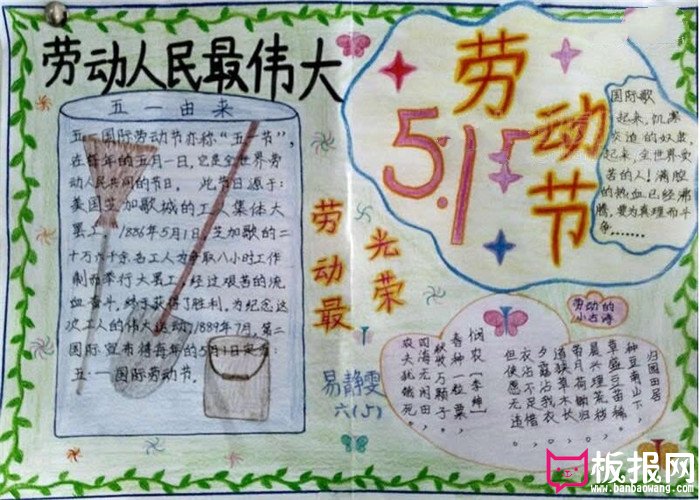 劳动人民最伟大
五一由来
五·一国际劳动节亦称“五一节”,
在每年的五月一日,它是全世界劳
动人民共同的节日。 此节日源于:
美国芝加歌城的工人集体大
罢工,1886年5月1日,芝加歌的二
十万六千余名工人为争取八小时工作
制而举行大罢工,经过艰苦的流
血奋斗,终于获得了胜利,为纪念
这次工人的伟大运动,1889年7月,第二
国际宣布将每年的5月1日定为
五·一国际劳动节。
劳动节
5.1
国际歌
起来,饥寒
交迫的奴隶,
起来,全世界受
苦的人!满腔
的热血已经沸
腾,要为真理而斗
争,……
劳动最
光荣
易静雯
六(5)
劳动的小古诗
悯农 [李绅]
春种一粒粟,
秋收万颗子。
四海无闲田,
农夫犹饿死。
归园田居
种豆南山下,
草盛豆苗稀。
晨兴理荒秽,
带月荷锄归。
道狭草木长,
夕露沾我衣。
衣沾不足惜,
但使愿无违。
板报网
www.banbaowang.com